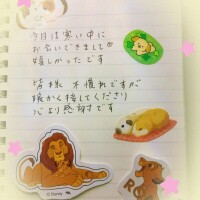 今日は寒い中に
お会いできまして
嬉しかったです
皆様 不慣れですが
暖かく接してくださり
心より感謝です
© Disney